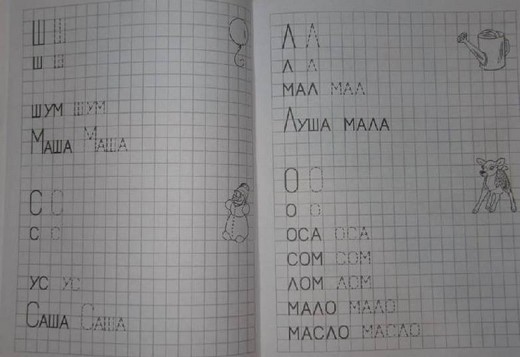 Ш Ш
ш ш
шум шум
Маша Маша
С С
с с
ус ус
Саша Саша
Л Л
л л
мал мал
Луша мала
О О
о о
оса оса
сом сом
лом лом
мало мало
масло масло